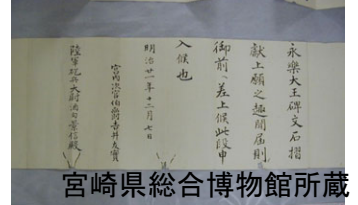 永樂大王碑文石摺
献上願之趣聞届則
御前へ差上候此段申
入候也
明治廿一年十二月七日
宮内次官伯爵吉井友實
陸軍砲兵大尉酒匂景信殿
宮崎県総合博物館所蔵